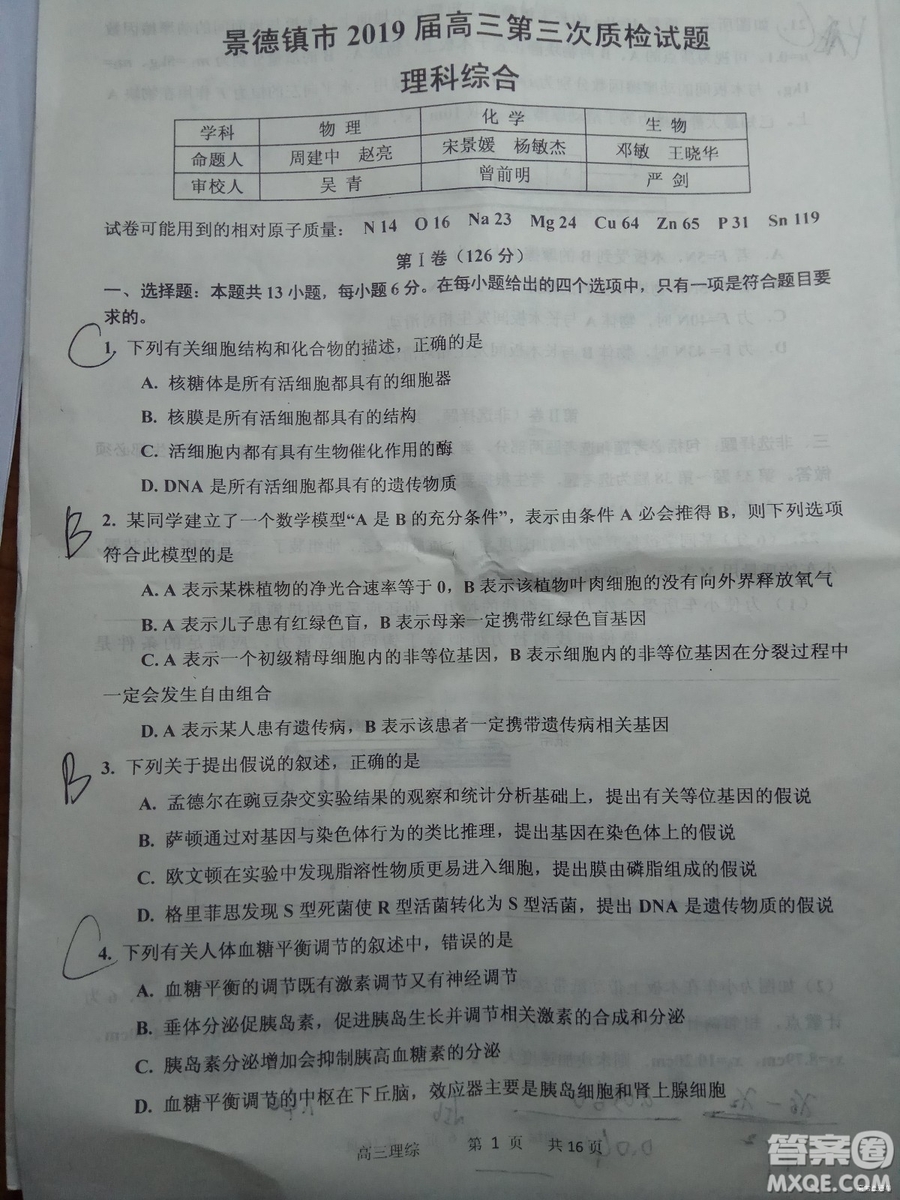 景德镇市 2019 届高三第三次质检试题
理科综合
学科 物 理 化 学 生 物
命题人 周建中 赵亮 宋景媛 杨敏杰 邓敏 王晓华
审校人 吴 青 曾前明 严 剑
试卷可能用到的相对原子质量： N 14 O 16 Na 23 Mg 24 Cu 64 Zn 65 P 31 Sn 119
第 I 卷（126 分）
一、选择题：本题共 13 小题，每小题 6 分。在每小题给出的四个选项中，只有一项是符合题目要
求的。
C
1. 下列有关细胞结构和化合物的描述，正确的是
A. 核糖体是所有活细胞都具有的细胞器
B. 核膜是所有活细胞都具有的结构
C. 活细胞内都有具有生物催化作用的酶
D. DNA 是所有活细胞都具有的遗传物质
B
2. 某同学建立了一个数学模型“A 是 B 的充分条件”，表示由条件 A 必会推得 B，则下列选项
符合此模型的是
A. A 表示某株植物的净光合速率等于 0，B 表示该植物叶肉细胞的没有向外界释放氧气
B. A 表示儿子患有红绿色盲，B 表示母亲一定携带红绿色盲基因
C. A 表示一个初级精母细胞内的非等位基因，B 表示细胞内的非等位基因在分裂过程中
一定会发生自由组合
D. A 表示某人患有遗传病，B 表示该患者一定携带遗传病相关基因
B
3. 下列关于提出假说的叙述，正确的是
A. 孟德尔在豌豆杂交实验结果的观察和统计分析基础上，提出有关等位基因的假说
B. 萨顿通过对基因与染色体行为的类比推理，提出基因在染色体上的假说
C. 欧文顿在实验中发现脂溶性物质更易进入细胞，提出膜由磷脂组成的假说
D. 格里菲思发现 S 型死菌使 R 型活菌转化为 S 型活菌，提出 DNA 是遗传物质的假说
C
4. 下列有关人体血糖平衡调节的叙述中，错误的是
A. 血糖平衡的调节既有激素调节又有神经调节
B. 垂体分泌促胰岛素，促进胰岛生长并调节相关激素的合成和分泌
C. 胰岛素分泌增加会抑制胰高血糖素的分泌
D. 血糖平衡调节的中枢在下丘脑，效应器主要是胰岛细胞和肾上腺细胞
高三理综 第 1 页 共 16 页
答案圈
MXQE.COM